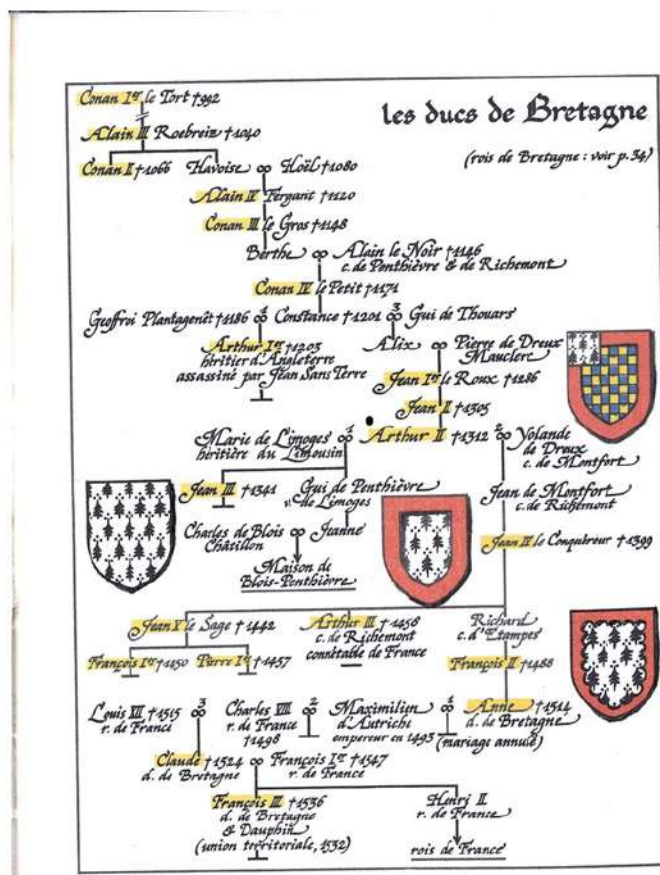 les ducs de Bretagne
(rois de Bretagne : voir p.34)
Conan Ier le Tort †992
Alain III Roebreiz †1040
Conan II †1066 Havoise ∞ Hoël †1080
Alain IV Fergant †1120
Conan III le Gros †1148
Berthe ∞ Alain le Noir †1146
c. de Penthièvre & de Richemont
Conan IV le Petit †1171
Geoffroi Plantagenêt †1186 1 ∞ Constance †1201 3 ∞ Gui de Thouars
Arthur Ier †1203
héritier d'Angleterre
assassiné par Jean Sans Terre
Alix ∞ Pierre de Dreux
Mauclerc
Jean Ier le Roux †1286
Jean II †1305
Marie de Limoges 1 ∞ Arthur II †1312 2 ∞ Yolande
héritière du Limousin
de Dreux
c. de Montfort
Jean III †1341
Gui de Penthièvre
v. de Limoges
Jean de Montfort
c. de Richemont
Charles de Blois ∞ Jeanne
Châtillon
Jean IV le Conquéreur †1399
Maison de
Blois-Penthièvre
Jean V le Sage †1442
Arthur III †1458
c. de Richemont
connétable de France
Richard
c. d'Etampes
François Ier †1450 Pierre Ier †1457
François II †1488
Louis XII †1515 3 ∞
r. de France
Charles VIII 2 ∞
r. de France
†1498
Maximilien 1 ∞
d'Autriche
empereur en 1493
Anne †1514
d. de Bretagne
(mariage annulé)
Claude †1524 ∞ François Ier †1547
d. de Bretagne r. de France
François III †1536
d. de Bretagne
& Dauphin
(union territoriale, 1532)
Henri II
r. de France
rois de France